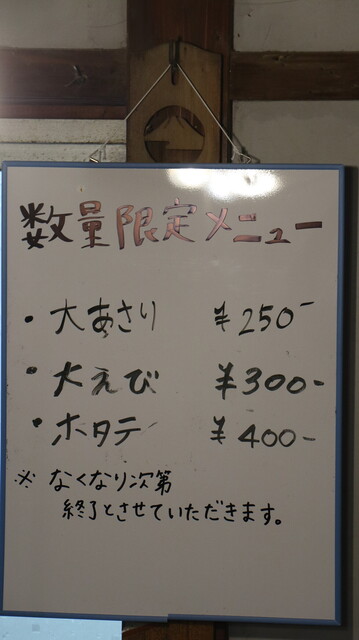 数量限定メニュー
・大あさり ¥250-
・大えび ¥300-
・ホタテ ¥400-
※なくなり次第
終了とさせていただきます。